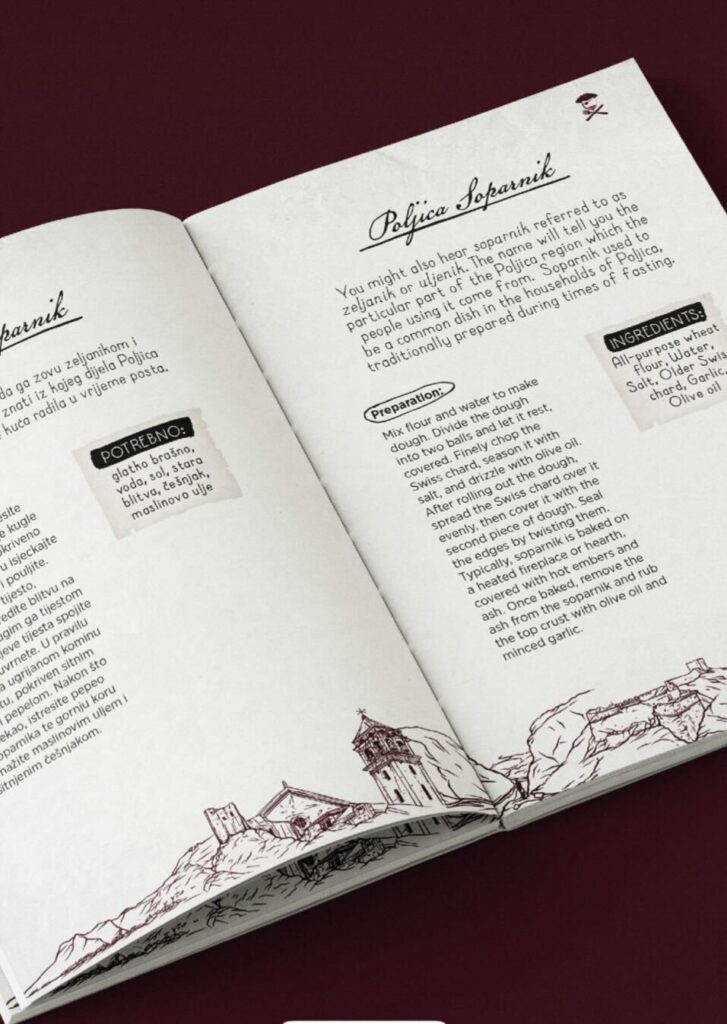 parnik
da ga zovu zeljanikom i
znati iz kojeg dijela Poljica
kuća radila u vrijeme posta.
POTREBNO:
glatko brašno,
voda, sol, stara
blitva, češnjak,
maslinovo ulje
esite
e kugle
okriveno
u isjeckajte
i pouljite.
tijesto,
edite blitvu na
ugim ga tijestom
jeve tijesta spojite
uvrnete. U pravilu
a ugrijanom kominu
tu, pokriven sitnim
i pepelom. Nakon što
ekao, istresite pepeo
oparnika te gornju koru
mažite maslinovim uljem i
sitnjenim češnjakom.
Poljica Soparnik
You might also hear soparnik referred to as
zeljanik or uljenik. The name will tell you the
particular part of the Poljica region which the
people using it come from. Soparnik used to
be a common dish in the households of Poljica,
traditionally prepared during times of fasting.
INGREDIENTS:
All-purpose wheat
flour, Water,
Salt, Older Swi
chard, Garlic,
Olive oil
Preparation:
Mix flour and water to make
dough. Divide the dough
into two balls and let it rest,
covered. Finely chop the
Swiss chard, season it with
salt, and drizzle with olive oil.
After rolling out the dough,
spread the Swiss chard over it
evenly, then cover it with the
second piece of dough. Seal
the edges by twisting them.
Typically, soparnik is baked on
a heated fireplace or hearth,
covered with hot embers and
ash. Once baked, remove the
ash from the soparnik and rub
the top crust with olive oil and
minced garlic.